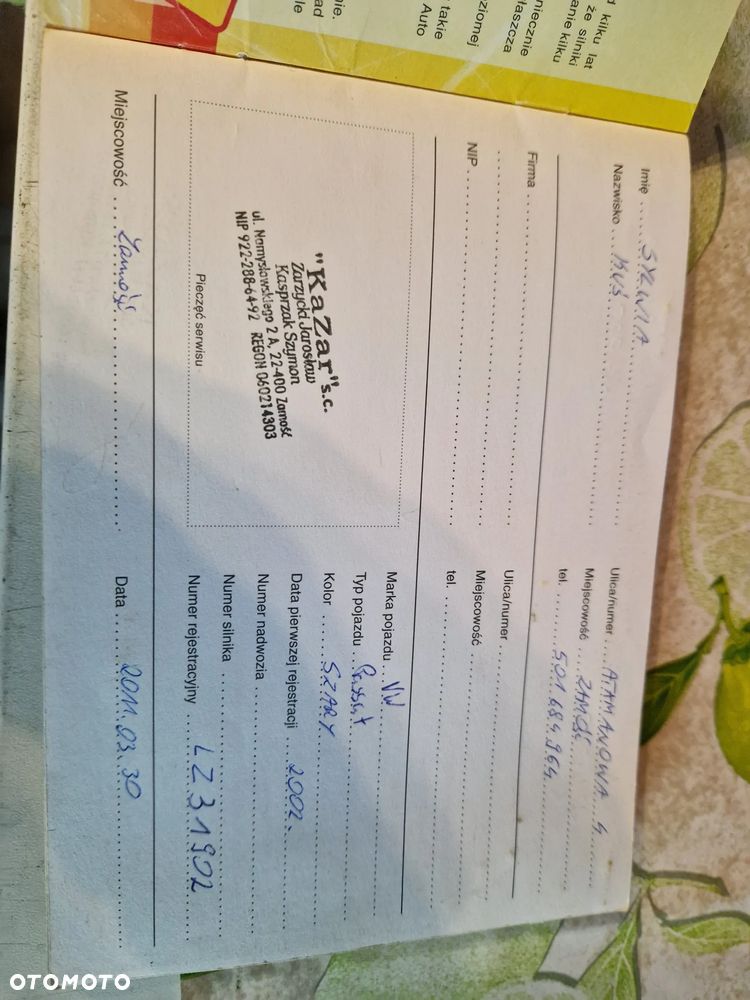 d kilku lat
że silniki
anie kilku
niecznie
łaszcza
ziomej
takie
Auto
nie.
ad
le
Imię SYLWIA
Nazwisko KUŚ
Ulica/numer ATAMANOWA 4
Miejscowość ZAMOŚĆ
tel. 501 684 964
Firma
NIP
Ulica/numer
Miejscowość
tel.
"KaZar" s.c.
Zarzycki Jarosław
Kasprzak Szymon
ul. Namysłowskiego 2 A, 22-400 Zamość
NIP 922-288-64-92 REGON 060214303
Pieczęć serwisu
Marka pojazdu VW
Typ pojazdu Passat
Kolor SZARY
Data pierwszej rejestracji 2002.
Numer nadwozia
Numer silnika
Numer rejestracyjny LZ 31902
Miejscowość Zamość
Data 2011.03.30
OTOMOTO